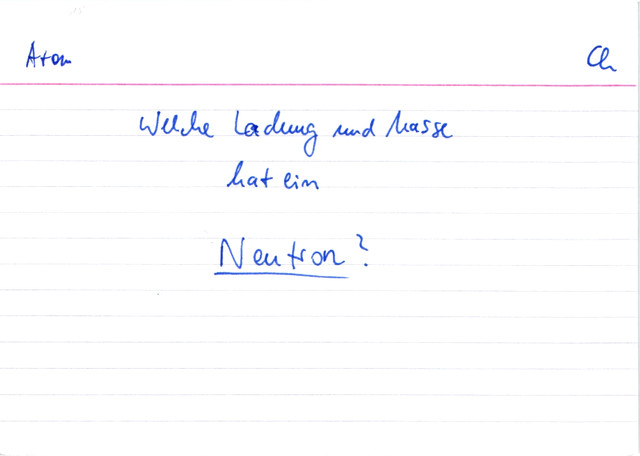 Atom Ch
Welche Ladung und Masse
hat ein
Neutron?